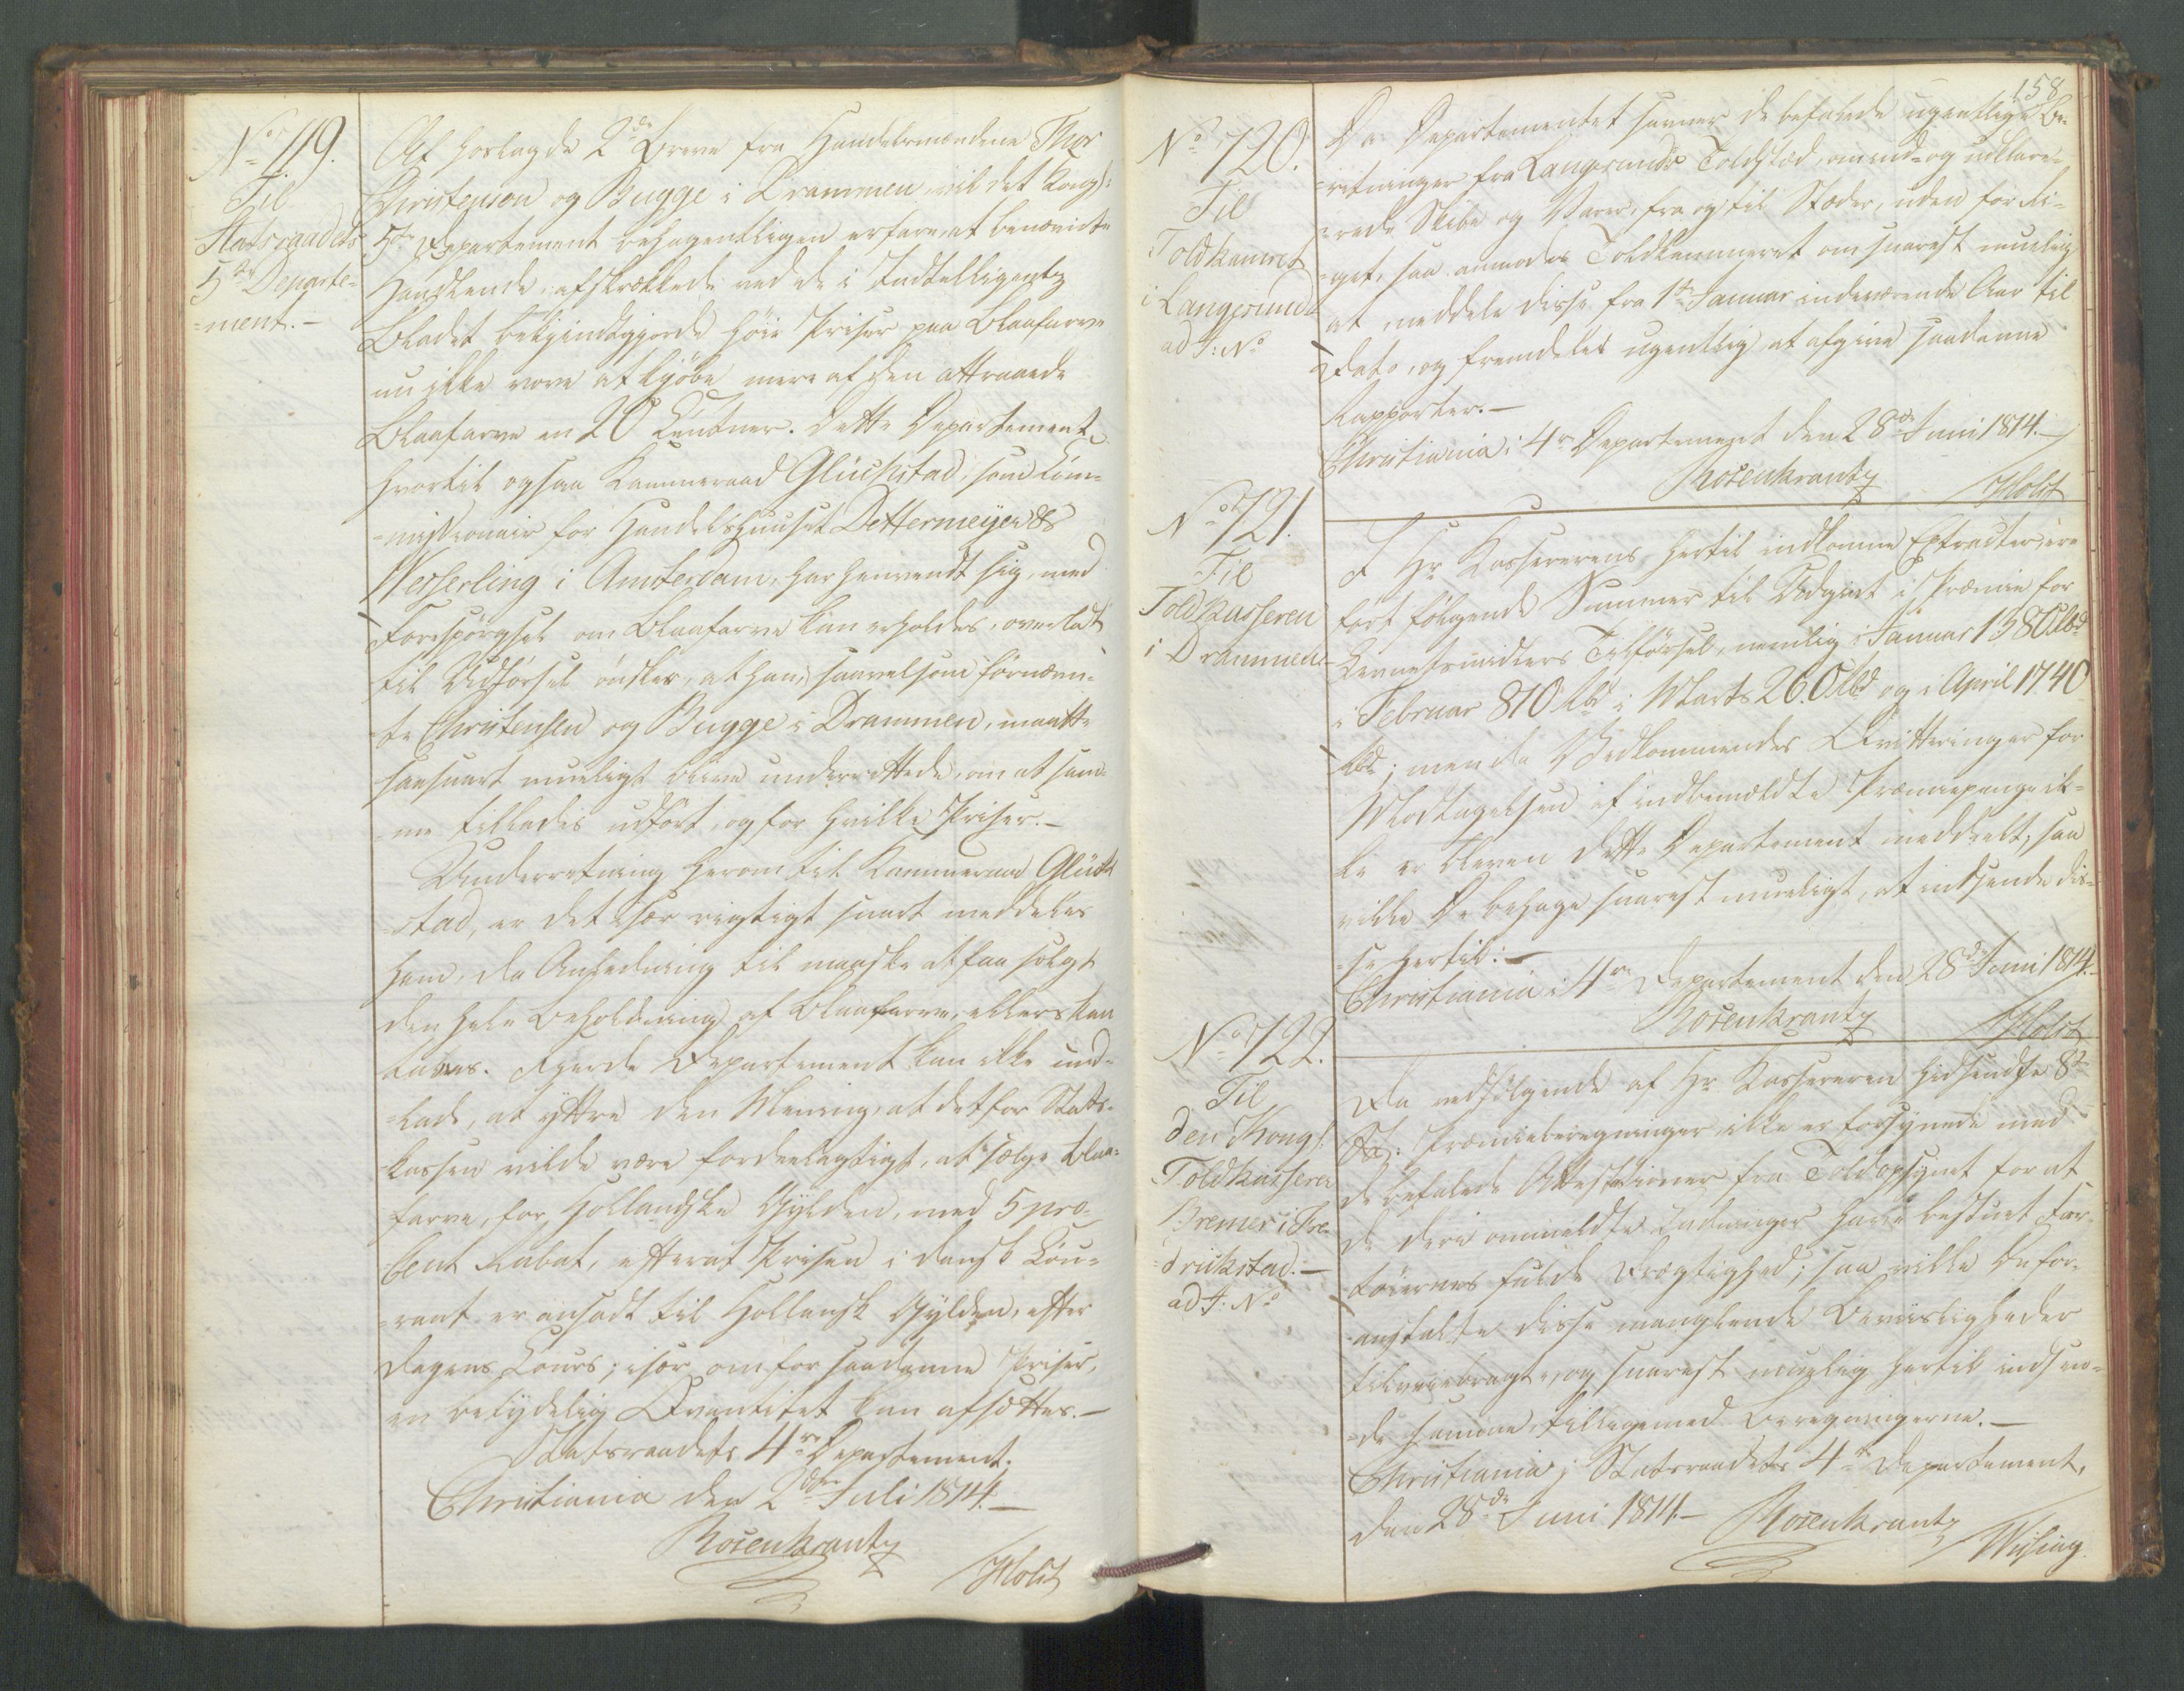 No 119.
Til
Statsraadets
5te Departe-
-ment.-
Af hoslagde 2de Breve fra Handelsmændene Thor
Christenson og Bugge i Drammen vil det Kongl:
5te Departement behagentligen erfare, at benævnte
Handlende, afskrækkede ved de i Indtelligentz
Bladet bekjendtgjorde høie Priser paa Blaafarve
nu ikke vove at kjøbe mere af den attraaede
Blaafarve en 20 Centner. Dette Departement
hvortil ogsaa Kammeraad Glückstad, som Com-
-missionair for Handelshuuset Dettermeijer &
Wesserling i Amsterdam, har henvendt sig, med
Forespørgsel om Blaafarve kan erholdes, overladt
til Udførsel ønsker, at han, saavelsom fornævn-
te Christensen og Bugge i Drammen, maatte
saasnart mueligt blive underrettede, om at sam-
-me tillades udført, og for hvilke Priser.-
Underretning herom til Kammeraad Glück
stad, er det især vigtigt snart meddeles
ham, da Anledning til maaske at faa solgt
den hele Beholdning af Blaafarve, ellers kan
tabes. Fjerde Departement kan ikke und-
-lade, at yttre den Mening, at det for Stats-
kassen vilde være fordeelagtigt, at sælge Blaa-
farve, for Hollandske Gylden, med 5 pro-
Cent Rabat, efterat Prisen i dansk Cou-
-rant er ansadt til Hollansk Gylden, efter
Dagens Cours; især om for saadanne Priser,
en betydelig Qvantitet kan afsættes.-
Statsraadets 4re Departement.
Christiania den 2den Juli 1814.-
Rosenkrantz
Holst
158
No 120.
Til
Toldkamret
i Langesund
ad J: No
Da Departementet savner de befalede ugentlige Be-
-retninger fra Langesunds Toldsted, om ind- og udklare-
-rede Skibe og Varer, fra og til Stæder, uden for Ri-
-get, saa anmodes Toldkammeret om snarest muelig
at meddele disse fra 1ste Januar indeværende Aar til
Dato, og fremdeles ugentlig at afgive saadanne
Rapporter.-
Christiania i 4re Departement den 28de Juni 1814.-
Rosenkrantz
Holst
No 121.
Til
Toldkasseren
i Drammen-
I Hr Kassererens hertil indkomne Extracter, ere
ført følgende Summer til Udgivt i Præmie for
Levnetsmidlers Tilførsel, nemlig i Januar 1380 Rbd
i Februar 810 Rbd i Marts 260 Rbd og i April 1740
Rbd; men da Vedkommendes Qvitteringer for
Modtagelsen af indbemældte Præmiepenge ik-
ke er bleven dette Departement meddeelt, saa
ville De behage snarest mueligt, at indsende dis-
se hertil:-
Christiania i 4re Departement den 28de Juni 1814.-
Rosenkrantz
Holst
No 122.
Til
den Kongl.
Toldkasserer
Bremer i Fre-
-drikstad.-
ad J: No
Da vedfølgende af Hr Kassereren hidsendte 8te
St: Præmieberegninger ikke er forsynede med
de befalede Attestationer fra Toldopsynet for at
de deri ommeldte Ladninger have bestaaet Far-
tøiernes fulde Drægtighed; saa ville De for-
anstalte disse manglende Beviisligheder
tilveiebragte, og snarest muelig hertil indsen-
-de samme, tilligemed Beregningerne.-
Christiania i Statsraadets 4de Departement,
den 28de Juni 1814.- Rosenkrantz
Wising